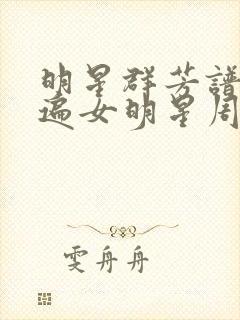 明星群芳谱
遍女明星周
雯舟舟